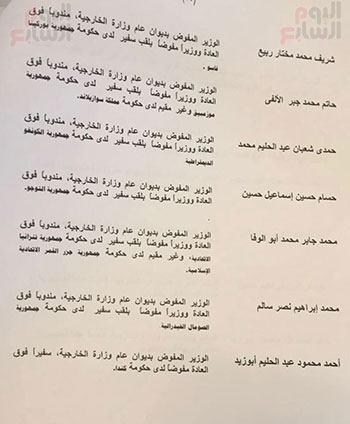 اليوم السابع
شريف محمد مختار ربيع
الوزير المفوض بديوان عام وزارة الخارجية، مندوباً فوق
العادة ووزيراً مفوضاً بلقب سفير لدى حكومة جمهورية بوركينا
فاسو
حاتم محمد جبر الألفي
الوزير المفوض بديوان عام وزارة الخارجية، مندوباً فوق
العادة ووزيراً مفوضاً بلقب سفير لدى حكومة جمهورية
موزمبيق وغير مقيم لدى حكومة مملكة سوازيلاند.
حمدى شعبان عبد الحليم محمد
الوزير المفوض بديوان عام وزارة الخارجية، مندوباً فوق
العادة ووزيراً مفوضاً بلقب سفير لدى حكومة جمهورية الكونغو
الديمقراطية
حسام حسين إسماعيل حسين
الوزير المفوض بديوان عام وزارة الخارجية، مندوباً فوق
العادة ووزيراً مفوضاً بلقب سفير لدى حكومة جمهورية التوجو.
محمد جابر محمد أبو الوفا
الوزير المفوض بديوان عام وزارة الخارجية، مندوباً فوق
العادة ووزيراً مفوضاً بلقب سفير لدى حكومة جمهورية تنزانيا
الاتحادية، وغير مقيم لدى حكومة جمهورية جزر القمر الاتحادية
الإسلامية.
محمد إبراهيم نصر سالم
الوزير المفوض بديوان عام وزارة الخارجية، مندوباً فوق
العادة ووزيراً مفوضاً بلقب سفير لدى حكومة جمهورية
الصومال الفيدرالية
أحمد محمود عبد الحليم أبوزيد
الوزير المفوض بديوان عام وزارة الخارجية، سفيراً فوق
العادة مفوضاً لدى حكومة كندا.